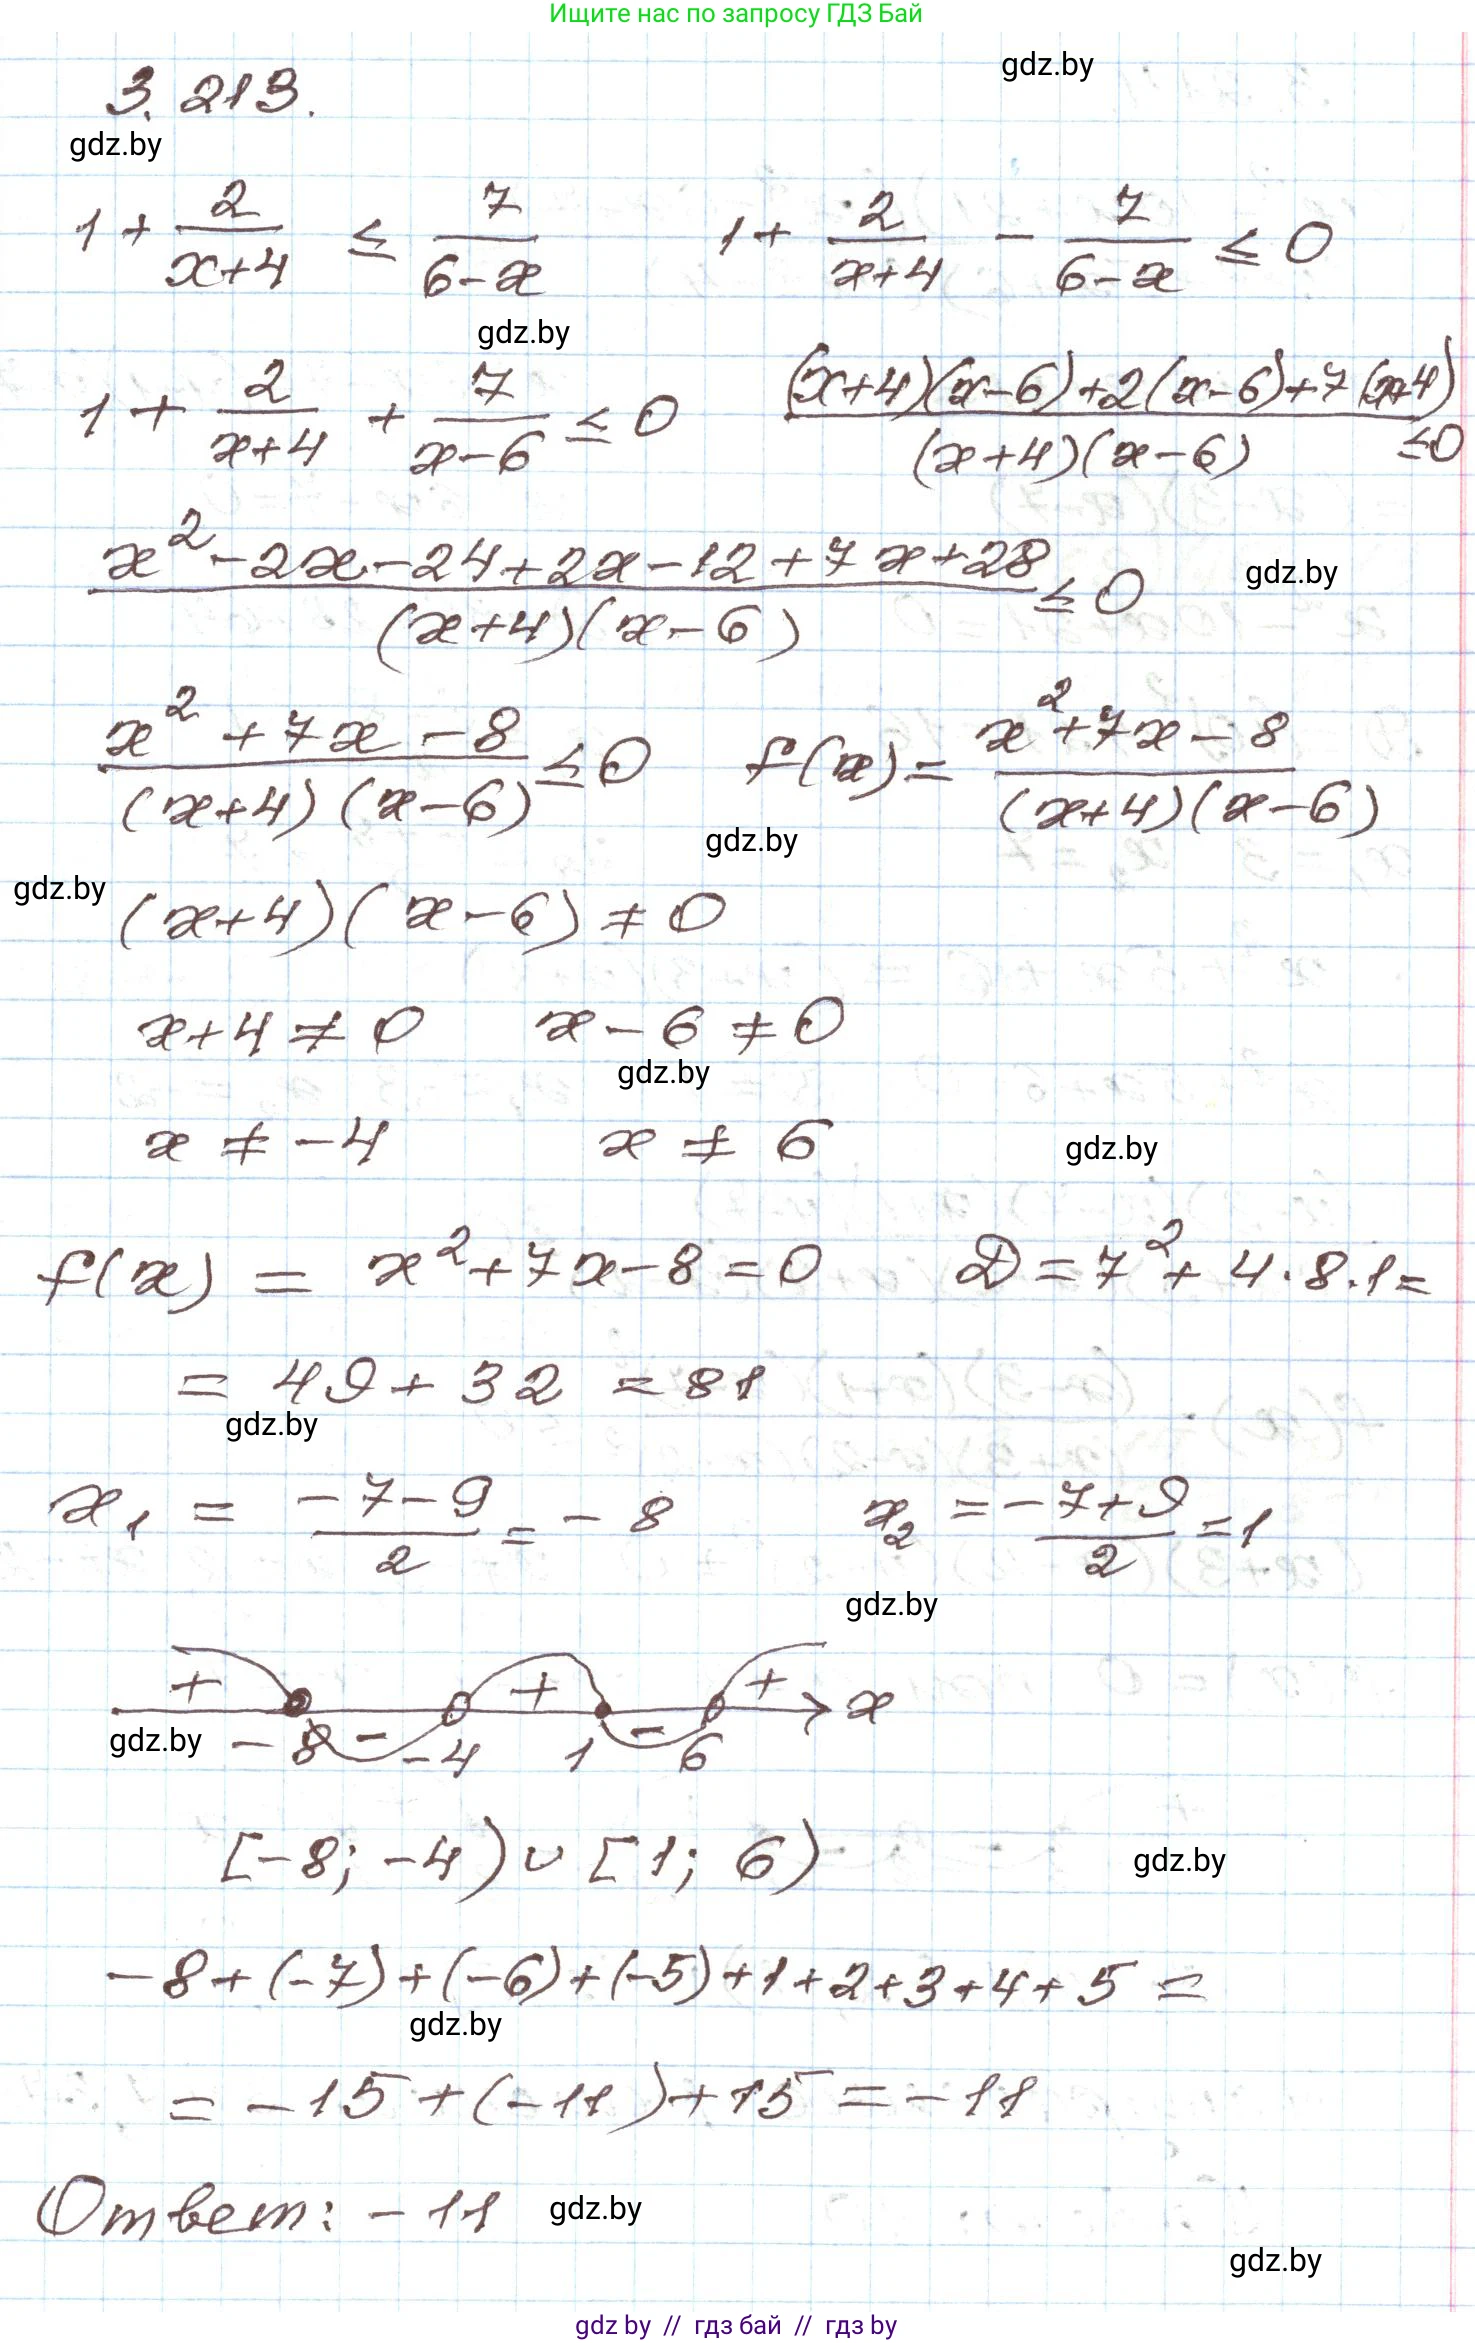 Ищите нас по запросу ГДЗ Бай
gdz.by
3.213.
gdz.by
1 + 2/(x+4) ≤ 7/(6-x)    1 + 2/(x+4) - 7/(6-x) ≤ 0
gdz.by
1 + 2/(x+4) + 7/(x-6) ≤ 0    ((x+4)(x-6)+2(x-6)+7(x+4))/((x+4)(x-6)) ≤0
(x²-2x-24+2x-12+7x+28)/((x+4)(x-6)) ≤ 0
gdz.by
(x²+7x-8)/((x+4)(x-6)) ≤ 0    f(x) = (x²+7x-8)/((x+4)(x-6))
gdz.by
gdz.by
(x+4)(x-6) ≠ 0
x+4 ≠ 0    x-6 ≠ 0
gdz.by
x ≠ -4    x ≠ 6
gdz.by
f(x) = x²+7x-8=0    D=7²+4·8·1=
= 49+32 =81
gdz.by
x₁ = (-7-9)/2 = -8    x₂ = (-7+9)/2 =1
gdz.by
+ - + - + x
gdz.by
-8 -4 1 6
[-8; -4) ∪ [1; 6)
gdz.by
-8+(-7)+(-6)+(-5)+1+2+3+4+5 =
gdz.by
= -15+(-11)+15 = -11
Ответ: -11
gdz.by
gdz.by
gdz by // гдз бай // гдз by